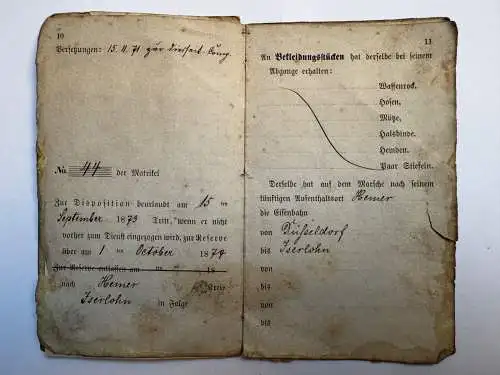 10
Versetzungen: 15. 11. 71 zur diesseit. Comp.
No 44 der Matrikel
Zur Disposition beurlaubt am 15 ten
September 1873 Tritt, wenn er nicht
vorher zum Dienst eingezogen wird, zur Reserve
über am 1 October 1874
Zur Reserve entlassen am ten 18
nach Hemer Kreis
Iserlohn in Folge
11
An Bekleidungsstücken hat derselbe bei seinem
Abgange erhalten:
Waffenrock.
Hosen.
Mütze.
Halsbinde.
Hemden.
Paar Stiefeln.
Derselbe hat auf dem Marsche nach seinem
künftigen Aufenthaltsort Hemer
die Eisenbahn
von Düsseldorf
bis Iserlohn
von
bis
von
bis